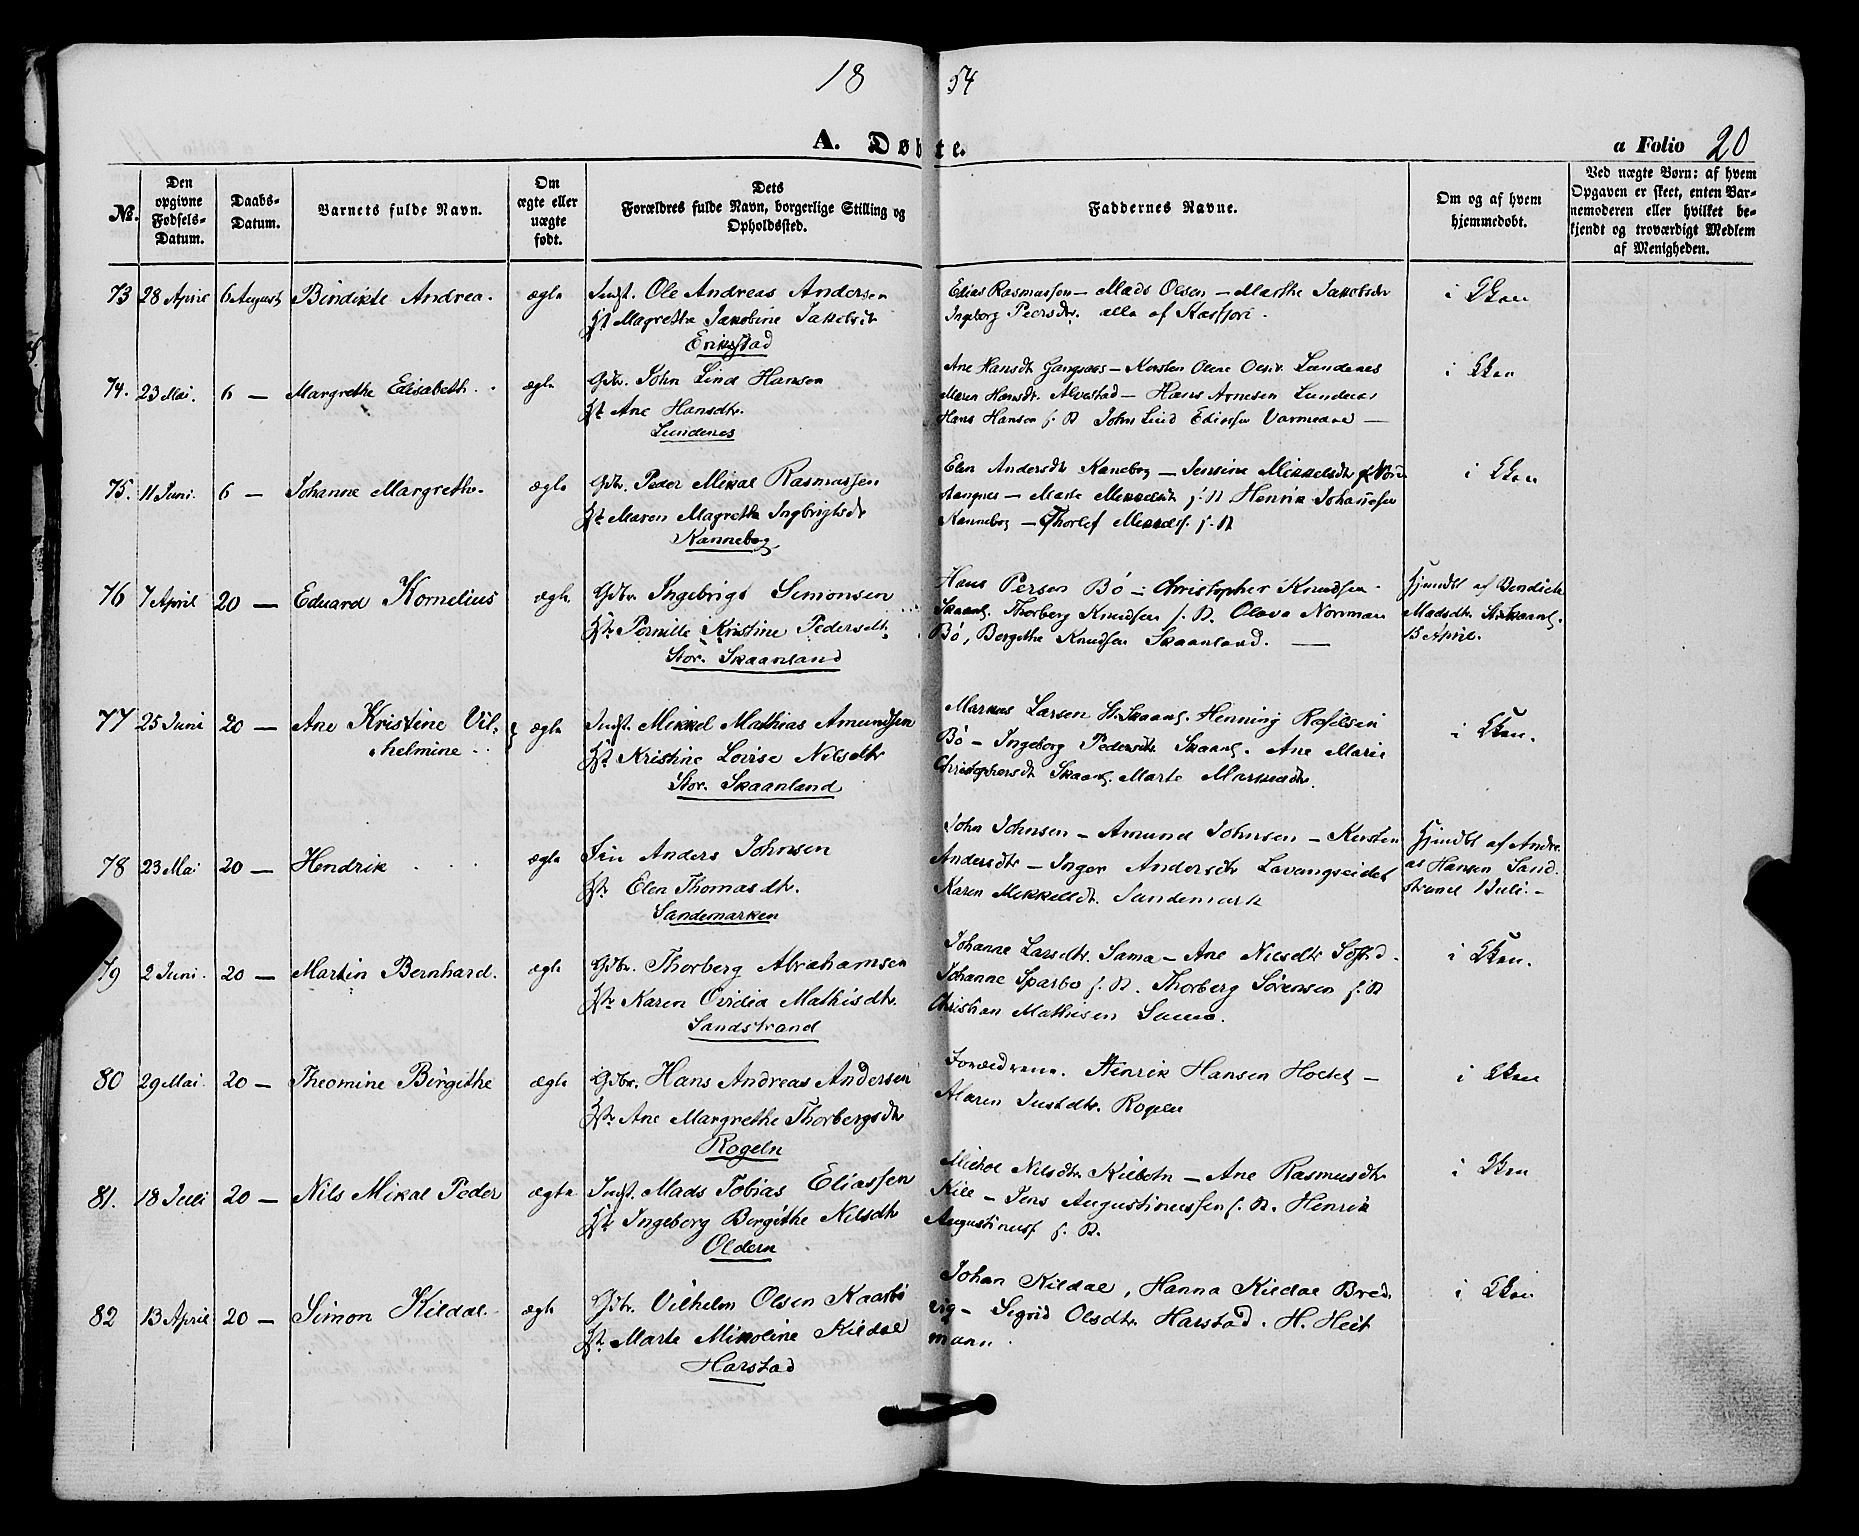 18 54
A. Døbte.
a Folio 20
No.
Den opgivne Fødsels-Datum.
Daabs-Datum.
Barnets fulde Navn.
Om ægte eller uægte født.
Dets Forældres fulde Navn, borgerlige Stilling og Opholdssted.
Faddernes Navne.
Om og af hvem hjemmedøbt.
Ved uægte Børn: af hvem Opgaven er skeet, enten Barnemoderen eller hvilket bekjendt og troværdigt Medlem af Menigheden.
73 28 April 6 August Bindikte Andrea. ægte Indst. Ole Andreas Andersen
Hst Magrethe Jakobine Jakobsdt
Erikstad
Edias Rasmussen – Mads Olsen – Marthe Jakobsdr
Ingeborg Pedrsdr. alle af Kasfjori.
i Kken
74. 23 Mai. 6 — Margrethe Elisabeth. ægte Gdbr. John Lind Hansen
Hst Ane Hansdtr.
Lundenes
Ane Hansdt Gangsaas – Olsdr. Lundenes
Maren Hansdr. Alvestad – Hans Arnesen Lundenes
Hans Hansen s. St John Lind —
i Kken
75. 11 Juni. 6 — Johanne Margrethe. ægte Gdbr. Peder Mikal Rasmussen
Hst Maren Magrethe Ingbrigtsdr
Kannebog
Elen Andersdt Kanebog – Jensine Mikkelsdt
– Marte Mikkelsdt s. St Henrik Johannesen
Kannebog – Thorlef s. St
i Kken
76 7 April 20 — Eduard Kornelius ægte Gdbr. Ingebrigt Simonsen
Hst Pernille Kristine Pedersdt.
Stor. Skaanland
Hans Person Bö – Christopher Knudsen
Skaanl. Thorberg Knudsen s. St. Olava Norman
Bö, Bergithe Knudsen Skaanland. —
Hjemdbt af Bendick
Madsdtr St. Skaanl.
13 April.
77 25 Juni 20 — Ane Kristine Vil-
helmine ægte Indst. Mikkel Mathias Amundsen
Hst Kristine Lovise Nilsdtr
Stor. Skaanland
Markus Larsen St. Skaanl. Henning Rafelsen
Bö – Ingeborg Pedersdtr Skaanl. Ane Marie
Christophersdt Skaanl. Marte Markusdtr.
i Kken.
78 23 Mai 20 — Hendrik ægte Anders Johnsen
Hst Elen Thomasdtr.
Sandemarken
John Johnsen – Amund Johnsen – Kersten
Andersdtr – Inger Andersdtr Lavangseidet
Karen Mikkelsdt. Sandemark
Hjemdbt af Andre-
as Hansen Sand-
strand 1 Juli. –
79 2 Juni. 20 — Martin Bernhard. ægte Gdbr. Thorberg Abrahamsen
Hst Karen Ovidia Mathisdtr.
Sandstrand
Johanne Larsdtr. Sama – Ane Nilsdtr
Johanne Sparbo s. St. Thorberg Sörensen s. St
Christian Mathisen Sama.
i Kken.
80 29 Mai. 20 — Theomine Birgithe ægte Gdbr. Hans Andreas Andersen
Hst Ane Margrethe Thorbergsdt
Rogeln
Forældrene. Henrik Hansen Holtet –
Maren Justdtr. Rogeln
i Kken
81. 18 Juli 20 — Nils Mikal Peder ægte Indst. Mads Tobias Eliassen
Hst Ingeborg Bergithe Nilsdtr
Oldern
Nilsdtr. Kilbotn – Ane Rasmusdtr
Kile – Jens Augustinussen s. St. Henrik
Augustinuss s. St.
i Kken
82 13 April 20 — Simon Kildal. ægte Gdbr. Vilhelm Olsen Kaasbö
Hst Marte Mikoline Kildal
Harstad
Johan Kildal, Hanna Kildal Bred-
vig – Sigrid Olsdtr. Harstad. H. Heit
mann.
i Kken